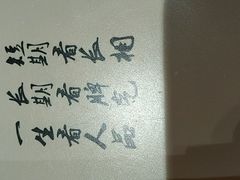 短期看长相
长期看脾气
一生看人品